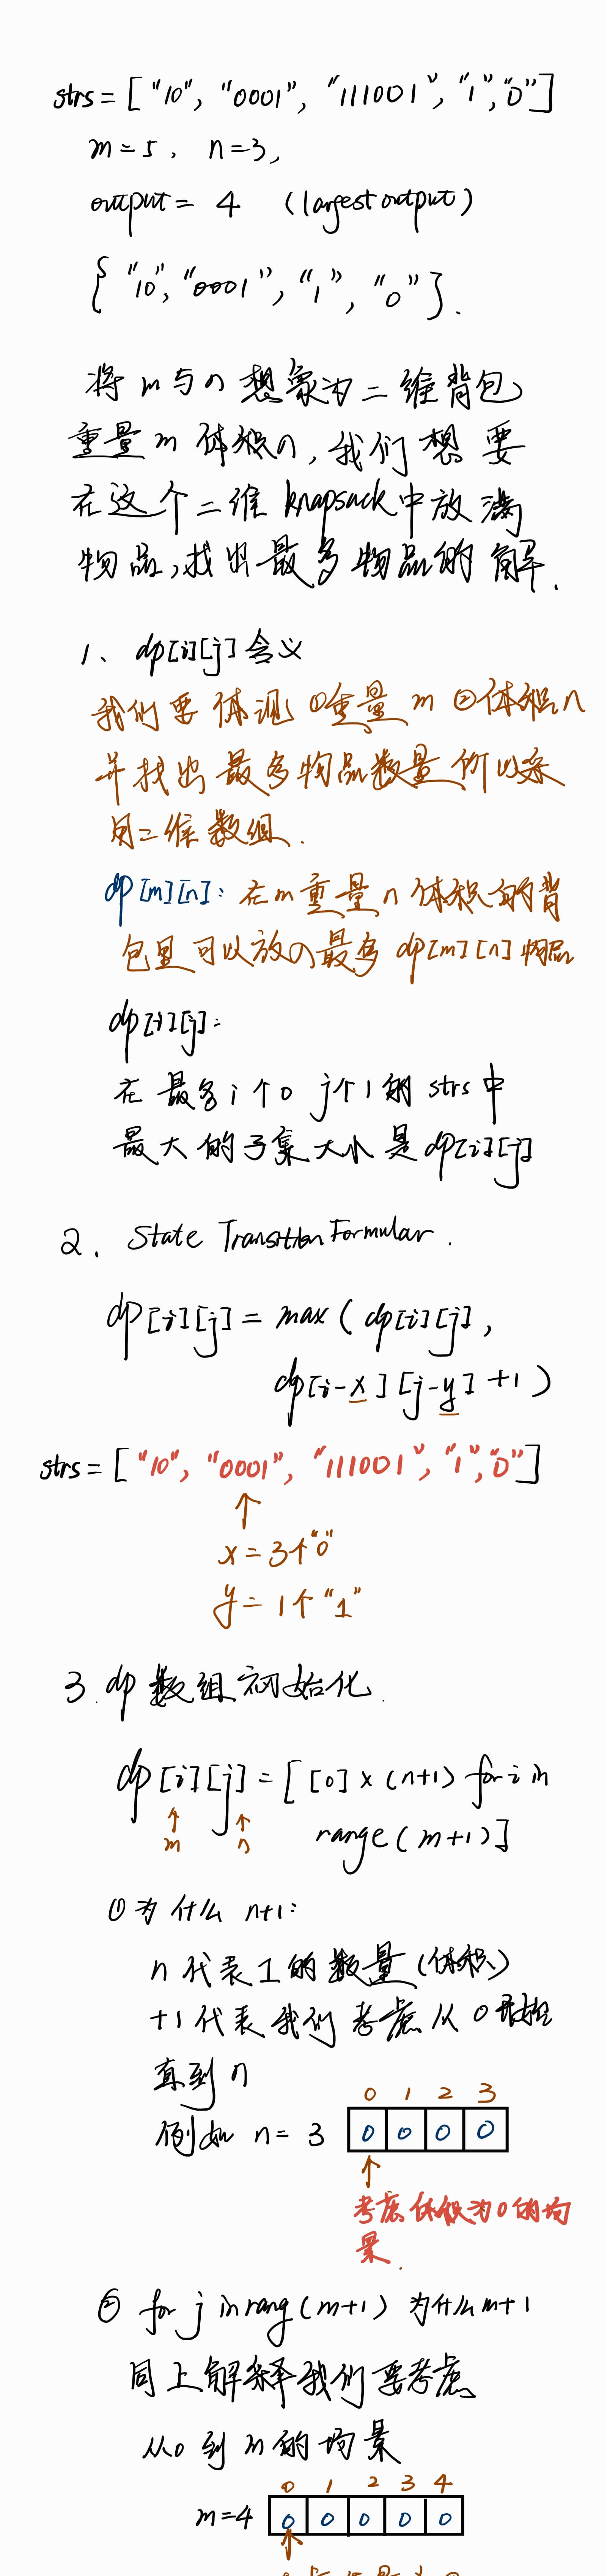 strs = [ "10", "0001", "111001", "1", "0" ]
m = 5, n = 3,
output = 4 (largest output)
{ "10", "0001", "1", "0" }.
将 m 与 n 想象为二维背包
重量 m 体积 n, 我们想要
在这个二维 knapsack 中放满
物品, 找出最多物品的解.
1、 dp[i][j] 含义
我们要体现 ①重量 m ②体积 n
并找出最多物品数量所以采
用二维数组.
dp[m][n]: 在 m 重量 n 体积的背
包里可以放入最多 dp[m][n] 物品
dp[i][j]:
在最多 i 个 0 j 个 1 的 strs 中
最大的子集大小是 dp[i][j]
2. State Transition Formular.
dp[i][j] = max ( dp[i][j],
dp[i-x][j-y] +1 )
strs = [ "10", "0001", "111001", "1", "0" ]
↑
x = 3个"0"
y = 1个"1"
3. dp 数组初始化.
dp [i][j] = [ [0] × (n+1) for i in
↑ ↑ range ( m+1 ) ]
m n
① 为什么 n+1:
n 代表 1 的数量 (体积)
+1 代表我们考虑从 0 开始
直到 n
0 1 2 3
例如 n = 3 0 0 0 0
↑
考虑体积为 0 的场
景.
② for j in rang (m+1) 为什么 m+1
同上解释我们要考虑
从 0 到 m 的场景
0 1 2 3 4
m=4 0 0 0 0 0
↑